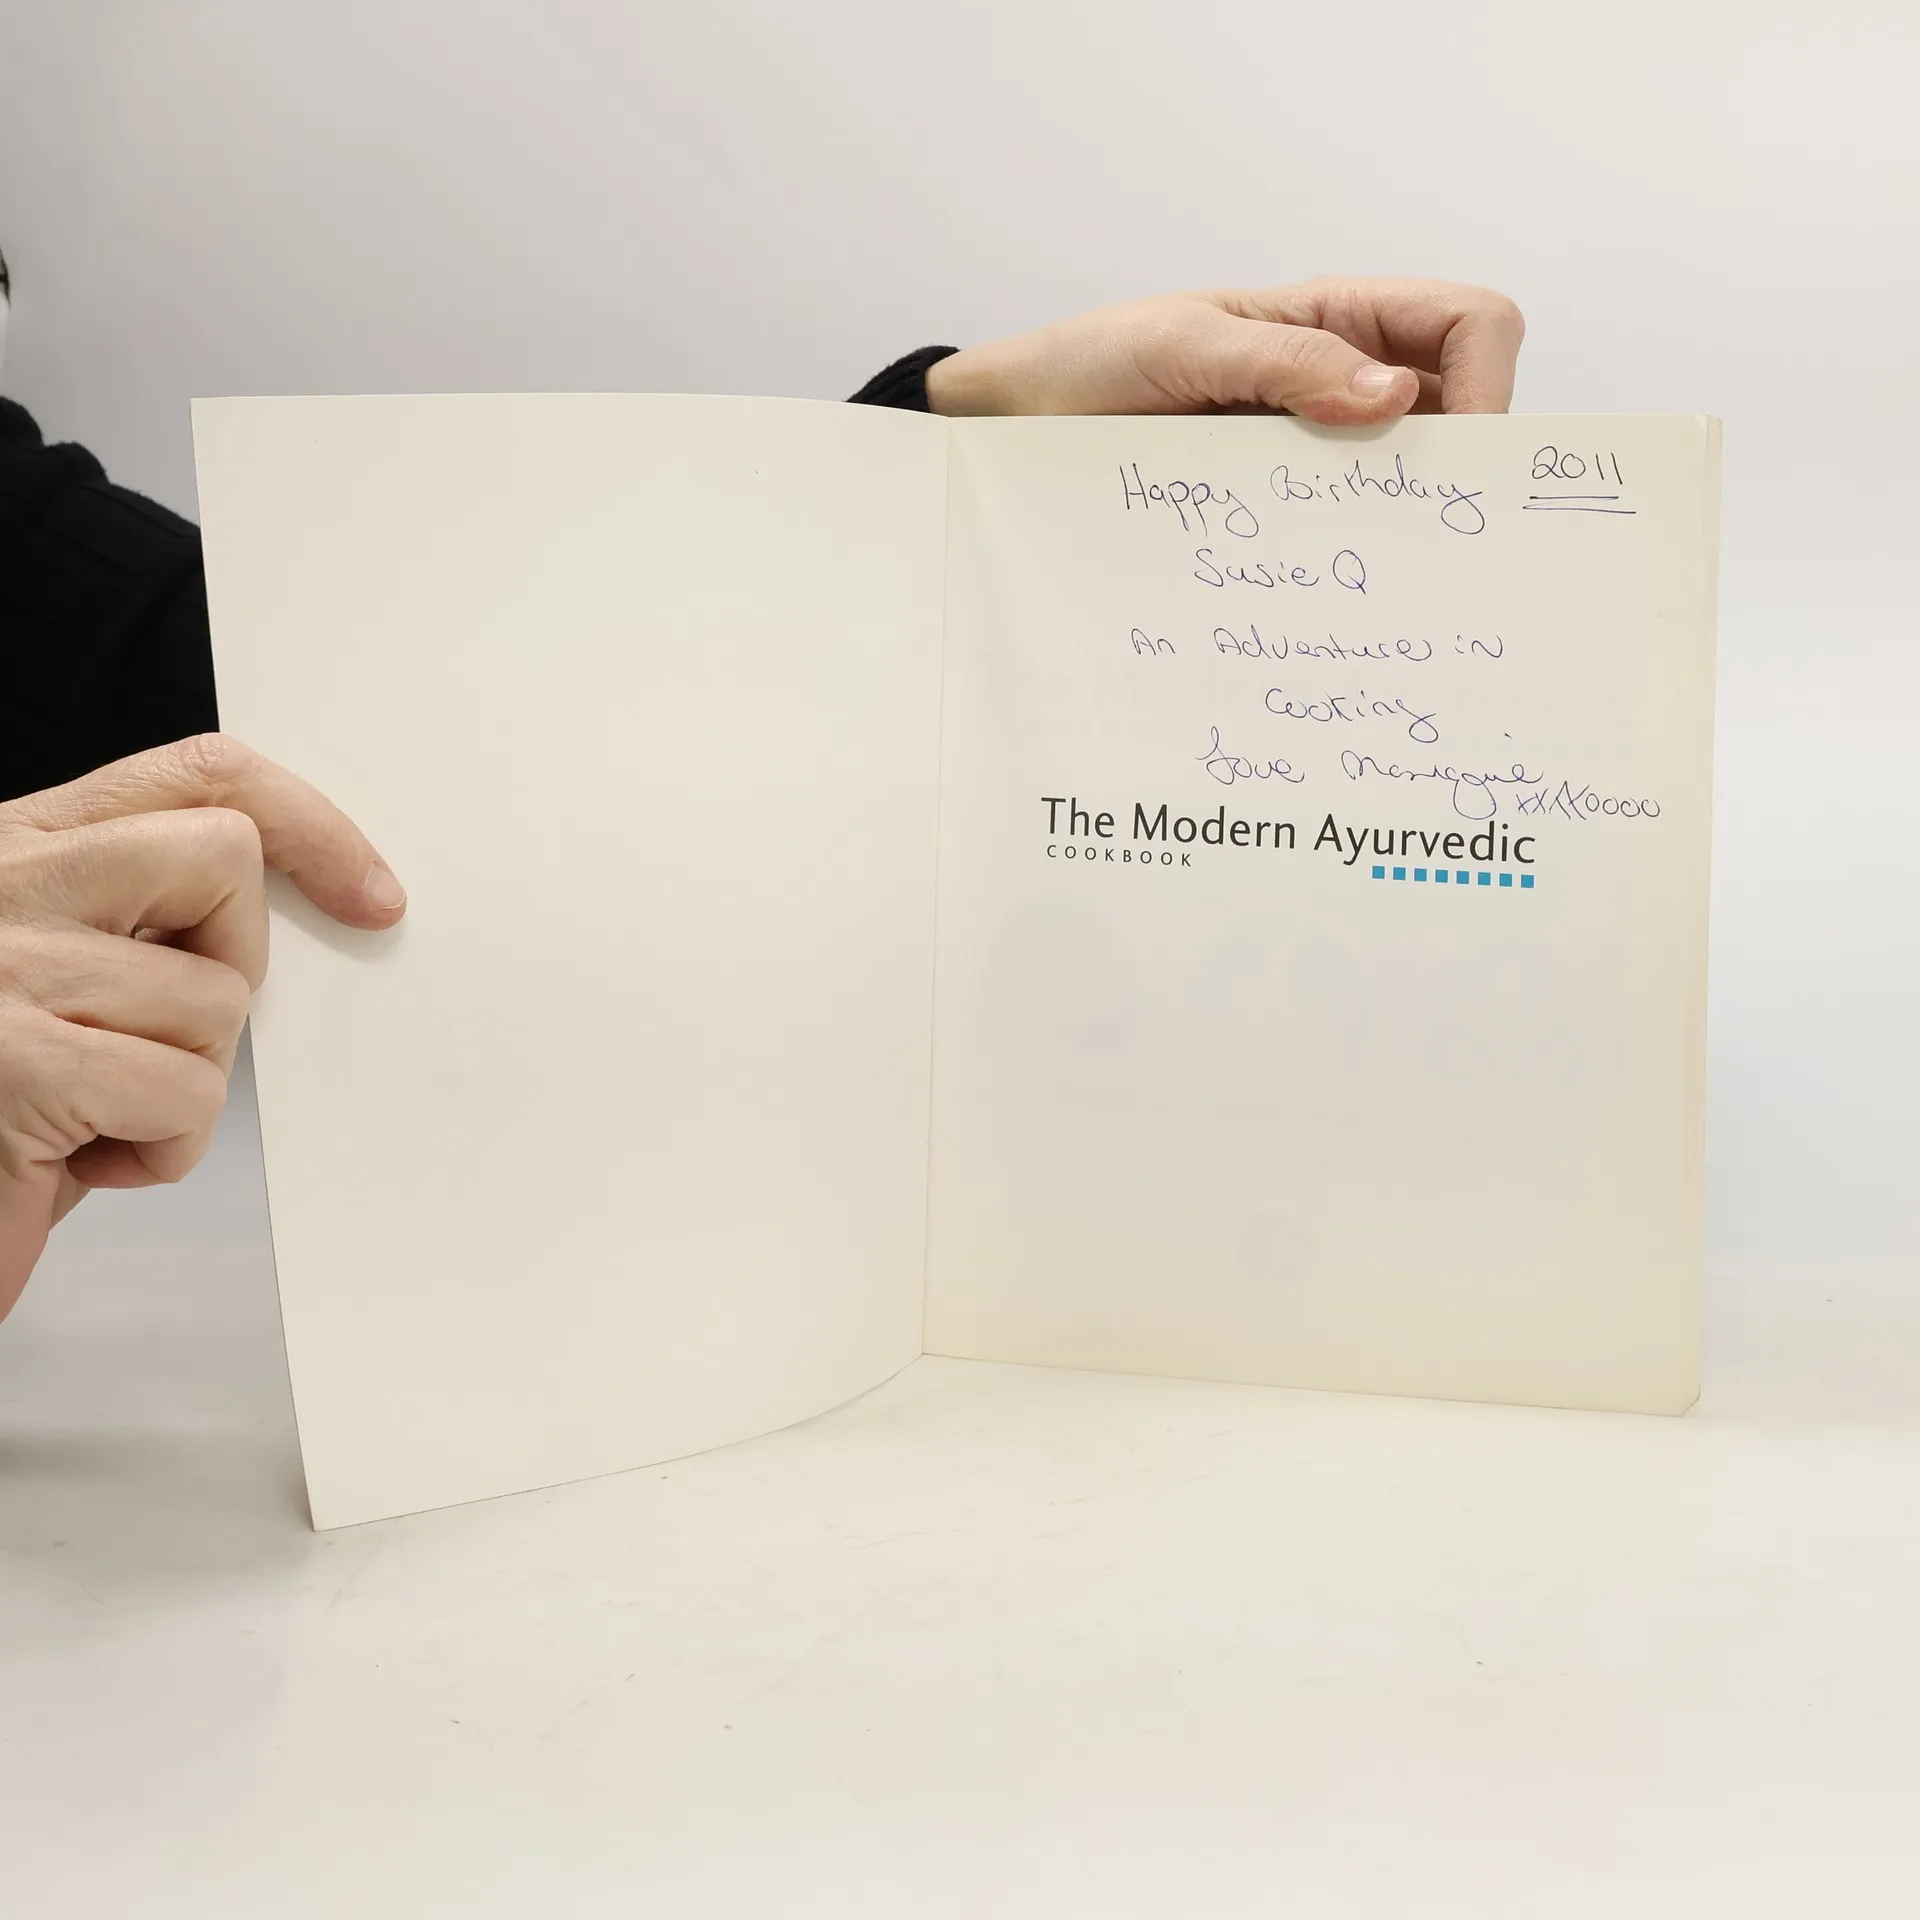 Happy Birthday 2011
Susie Q
An Adventure in
Cooking
Love Monique
XXXX0000
The Modern Ayurvedic
COOKBOOK